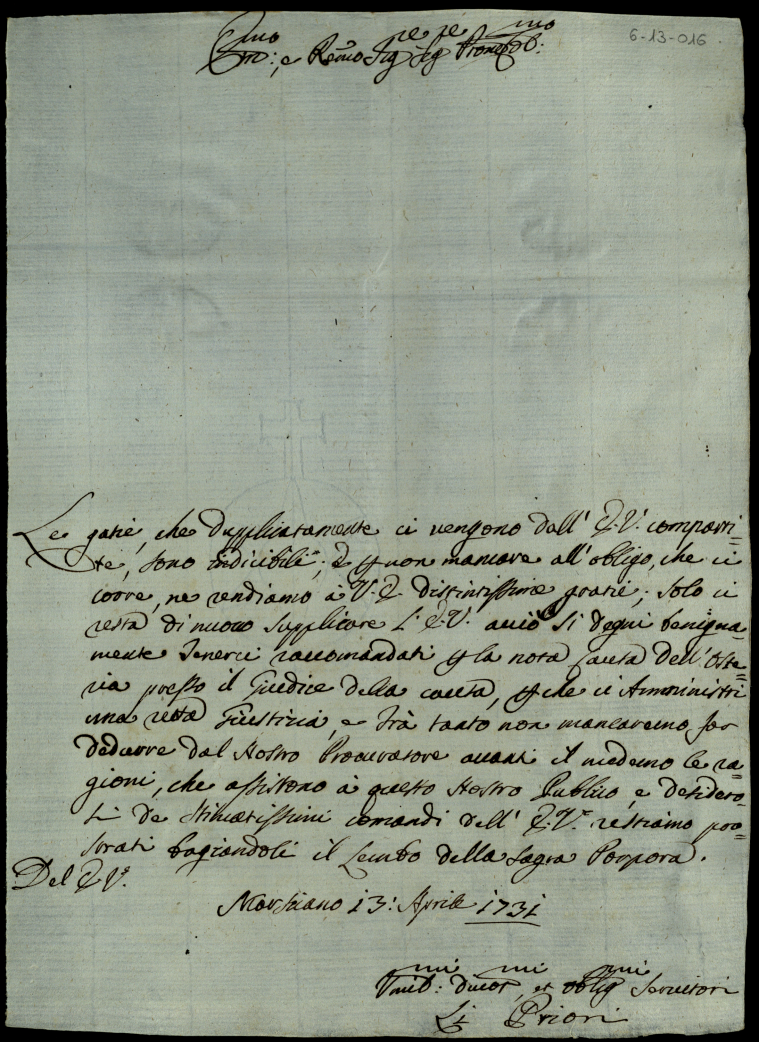 6-13-016
Em̃o: e Rem̃o Sig.re Sig.re Prone Col.mo:
Le gratie, che dupplicatamente ci vengono dall' E.V. comparti=
te, sono indicibili; E p non mancare all' obligo, che ci
corre, ne rendiamo à V.E. distintissime gratie; solo ci
resta di nuovo supplicare L' E.V. acciò si degni benigna=
mente tenerci raccomandati p la nota causa dell' Oste=
ria presso il Giudice della causa, p che ci Amministri
una retta Giustizia, e trà tanto non mancaremo far
dedurre dal Nostro Procuratore avanti il medemo le ra=
gioni, che assistono à questo Nostro Publico, e desidero=
si de stimatissimi comandi dell' E.V. restiamo pro=
strati bagiandoli il Lembo della Sagra Porpora.
Del E.V.
Marsciano 13: Aprile 1731
Umil:mi Devot.mi, et oblig.mi Servitori
Li Priori